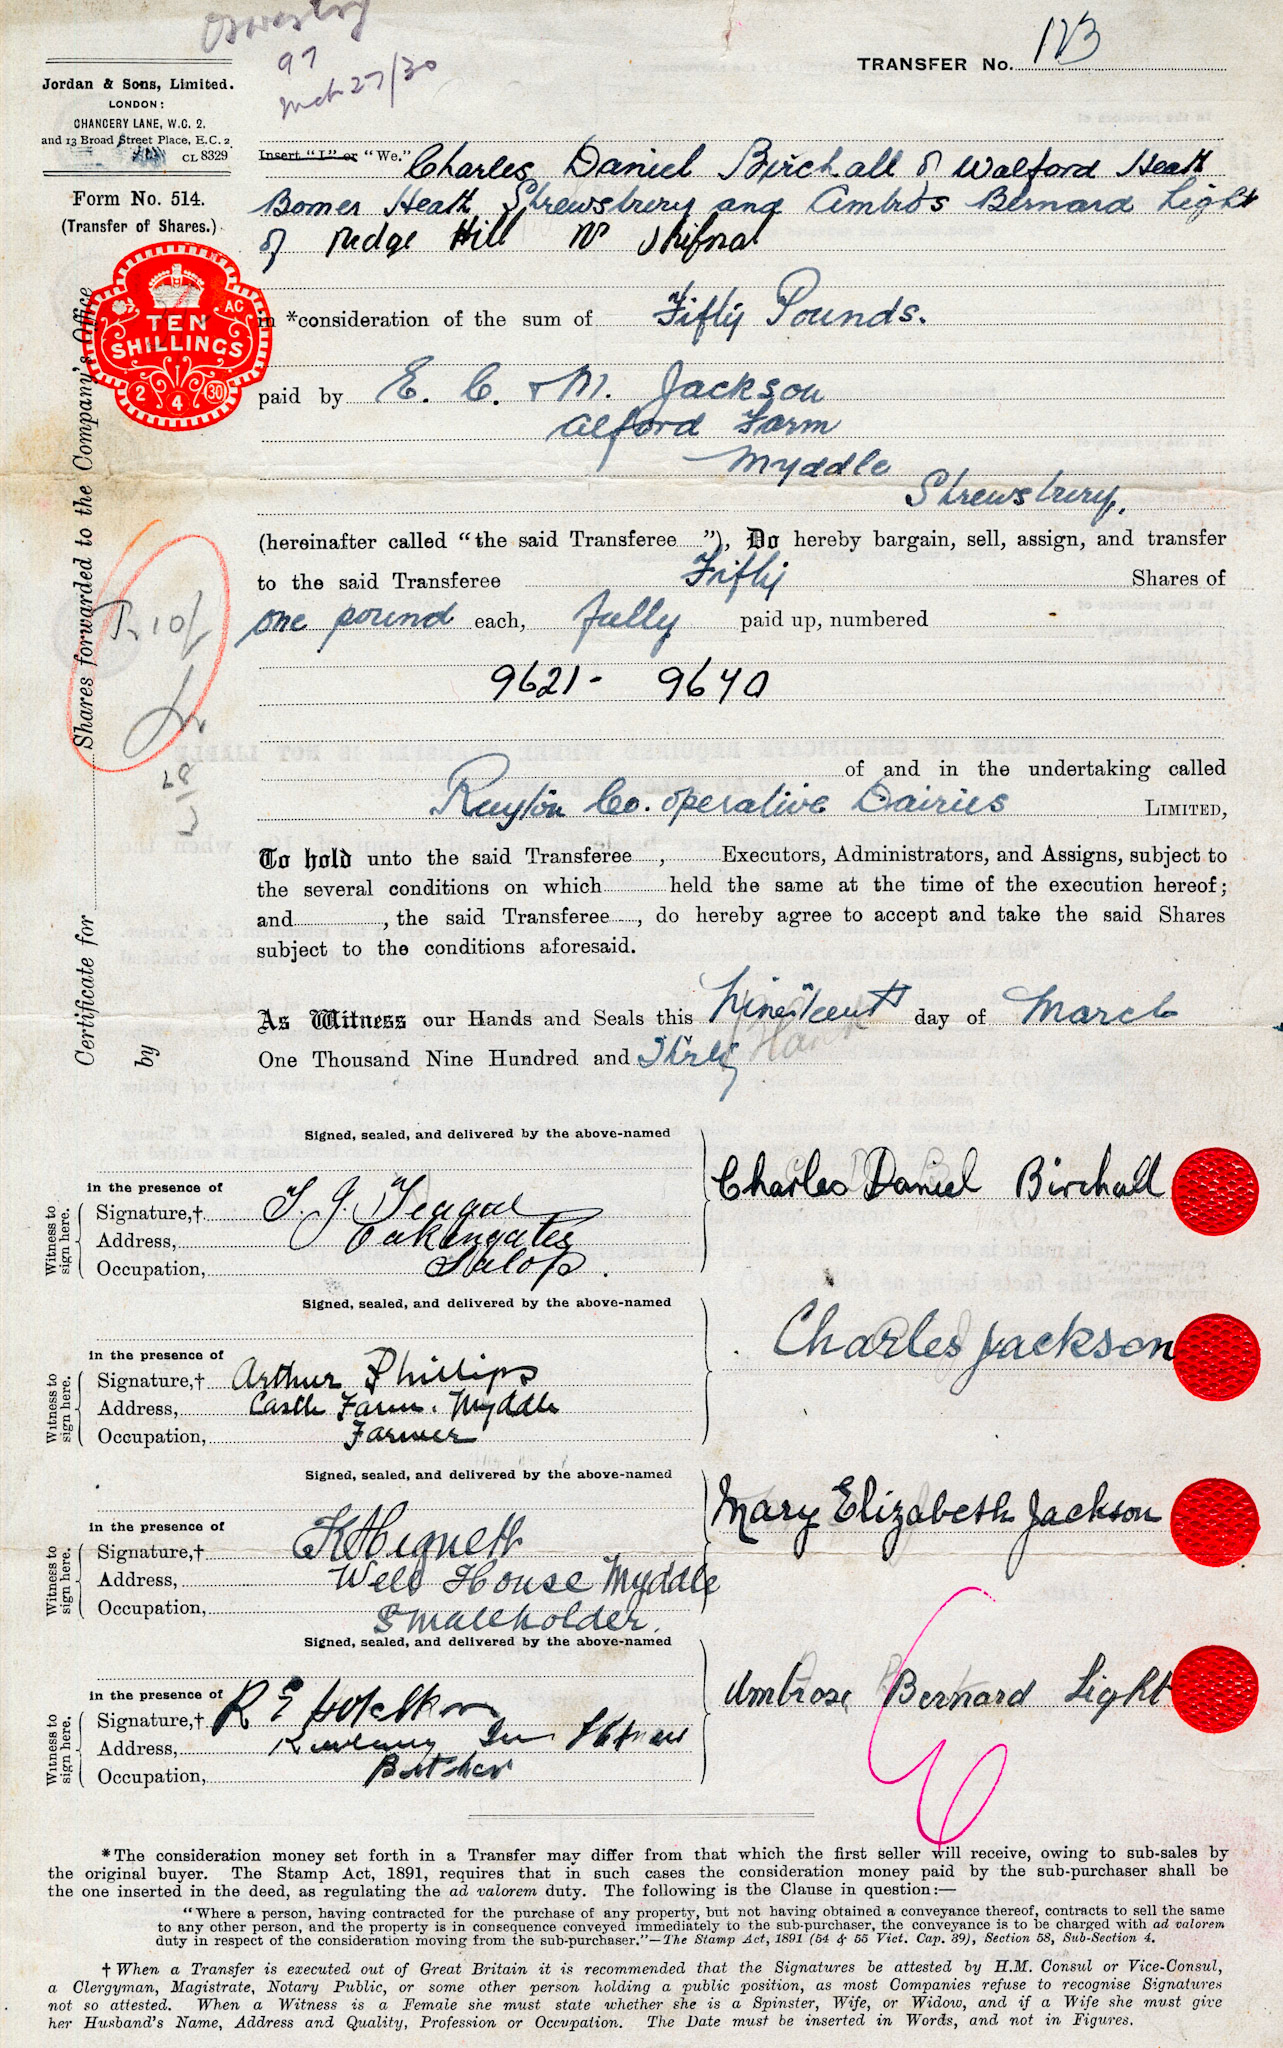 Oswestry
97
Mch 27/30
TRANSFER No. 123
Jordan & Sons, Limited.
LONDON:
CHANCERY LANE, W.C. 2.
and 13 Broad Street Place, E.C. 2
CL 8329
Form No. 514.
(Transfer of Shares.)
Insert "I" or "We." Charles Daniel Birchall of Walford Heath
Bomer Heath Shrewsbury and Ambros Bernard Light
of Ridge Hill Nr Shifnal
TEN
SHILLINGS
AC
2 4 30
in *consideration of the sum of Fifty Pounds.
paid by E. C. & M. Jackson
Alford Farm
Myddle
Shrewsbury.
(hereinafter called "the said Transferee"), Do hereby bargain, sell, assign, and transfer
to the said Transferee Fifty Shares of
one pound each, fully paid up, numbered
9621 - 9640
of and in the undertaking called
Ruyton Co. operative Dairies LIMITED,
To hold unto the said Transferee, Executors, Administrators, and Assigns, subject to
the several conditions on which held the same at the time of the execution hereof;
and, the said Transferee, do hereby agree to accept and take the said Shares
subject to the conditions aforesaid.
As Witness our Hands and Seals this Nineteenth day of March
One Thousand Nine Hundred and Thirty
Certificate for Shares forwarded to the Company's Office
by
10/
Signed, sealed, and delivered by the above-named
Charles Daniel Birchall
in the presence of
Witness to sign here.
Signature,† T. J. Teague
Address, Oakengates
Occupation, Salop.
Signed, sealed, and delivered by the above-named
Charles Jackson
in the presence of
Witness to sign here.
Signature,† Arthur Phillips
Address, Castle Farm. Myddle
Occupation, Farmer
Signed, sealed, and delivered by the above-named
Mary Elizabeth Jackson
in the presence of
Witness to sign here.
Signature,† K Hignett
Address, Well House Myddle
Occupation, Smallholder.
Signed, sealed, and delivered by the above-named
Ambrose Bernard Light
in the presence of
Witness to sign here.
Signature,† R E
Address, Inn
Occupation, Butcher
*The consideration money set forth in a Transfer may differ from that which the first seller will receive, owing to sub-sales by
the original buyer. The Stamp Act, 1891, requires that in such cases the consideration money paid by the sub-purchaser shall be
the one inserted in the deed, as regulating the ad valorem duty. The following is the Clause in question:—
"Where a person, having contracted for the purchase of any property, but not having obtained a conveyance thereof, contracts to sell the same
to any other person, and the property is in consequence conveyed immediately to the sub-purchaser, the conveyance is to be charged with ad valorem
duty in respect of the consideration moving from the sub-purchaser."—The Stamp Act, 1891 (54 & 55 Vict. Cap. 39), Section 58, Sub-Section 4.
† When a Transfer is executed out of Great Britain it is recommended that the Signatures be attested by H.M. Consul or Vice-Consul,
a Clergyman, Magistrate, Notary Public, or some other person holding a public position, as most Companies refuse to recognise Signatures
not so attested. When a Witness is a Female she must state whether she is a Spinster, Wife, or Widow, and if a Wife she must give
her Husband's Name, Address and Quality, Profession or Occupation. The Date must be inserted in Words, and not in Figures.